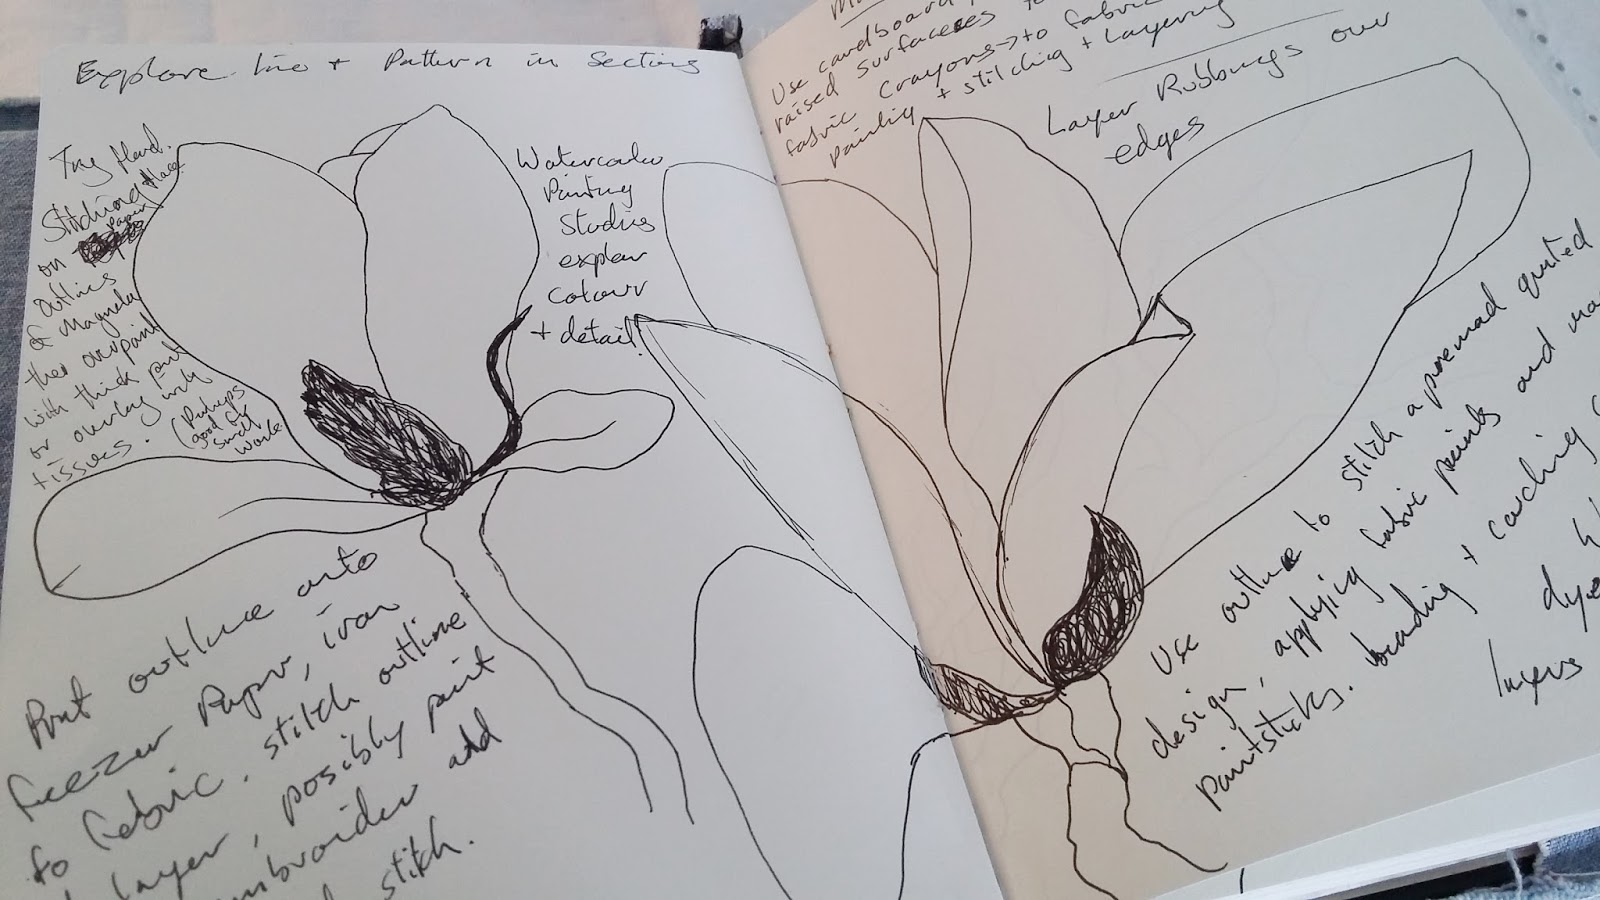 Explore line + Pattern in Sections
Try Hand.
Stitching
on paper
outlines
of Magnolia
then overpaint
with thick paint
or overlay with
tissues. (Perhaps
good for
small
work
Watercolour
Painting
Studies
explore
colour
+ detail.
Print outline onto
freezer Paper, iron
to fabric. stitch outline
layer, posibly print
embroider add
stitch.
Use cardboard
raised surfaces to
fabric crayons → to fabric
Painting + stitching + Layering
Layer Rubbings over
edges
Use outline to stitch a premad quilted
design, applying fabric paints and
Paintsticks. beading + couching
dye
layers